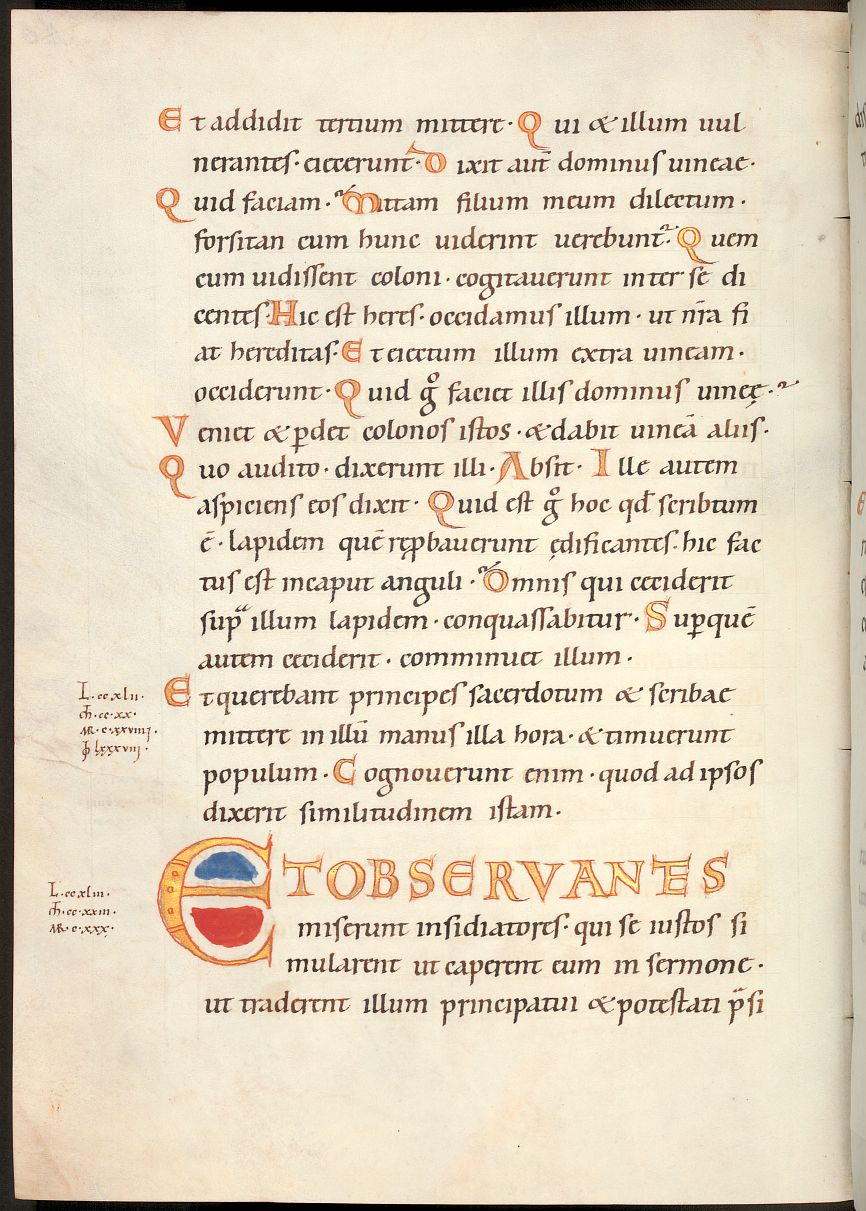 Et addidit tertium mittere. Qui & illum uul
nerantes. eiecerunt. Dixit aut̄ dominus uineae.
Quid faciam. Mittam filium meum dilectum.
forsitan cum hunc uiderint uerebunt᷑. Quem
cum uidissent coloni. cogitauerunt inter se di
centes. Hic est heres. occidamus illum. ut nr̄a fi
at hereditas. Et eiectum illum extra uineam.
occiderunt. Quid gͦ faciet illis dominus uineę.
Veniet & ꝑdet colonos istos. & dabit uineā aliis.
Quo audito. dixerunt illi. Absit. Ille autem
aspiciens eos dixit. Quid est gͦ hoc qđ scribtum
ē. lapidem quē reꝑbauerunt ędificantes. hic fac
tus est in caput anguli. Omnis qui ceciderit
sup̄ illum lapidem. conquassabitur. Suꝑquē
autem ceciderit. comminuet illum.
L. ccxlii.
Et querebant principes sacerdotum & scribae
M̄. cc. xx.
mittere in illū manus illa hora. & timuerunt
MR. c. xxviiii.
populum. Cognouerunt enim. quod ad ipsos
Īo lxxxviii.
dixerit similitudinem istam.
ETOBSERVANTES
L. ccxliii.
miserunt insidiatores. qui se iustos si
M̄. cc. xxiii.
mularent ut caperent eum in sermone.
MR. c. xxx.
ut traderent illum principatui & potestati p̄si